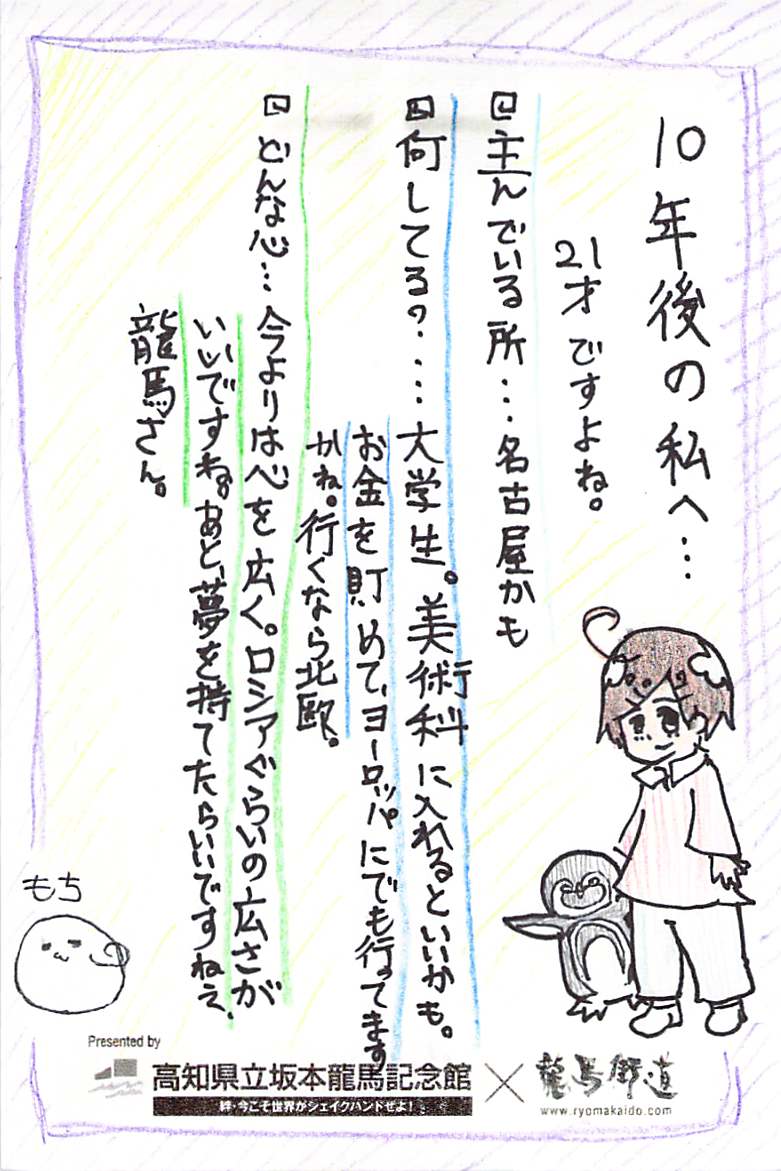 10年後の私へ…
21才ですよね。
主んでいる所…名古屋かも
何してる？‥‥大学生。美術科に入れるといいかも。
お金を貯めて、ヨーロッパにでも行ってます
かね。行くなら北欧。
どんな心…今よりは心を広く。ロシアぐらいの広さが
いいですね。あと、夢を持てたらいいですねぇ、
龍馬さん。
もち
Presented by
高知県立坂本龍馬記念館×龍馬街道
絆・今こそ世界がシェイクハンドせよ！
www.ryomakaido.com